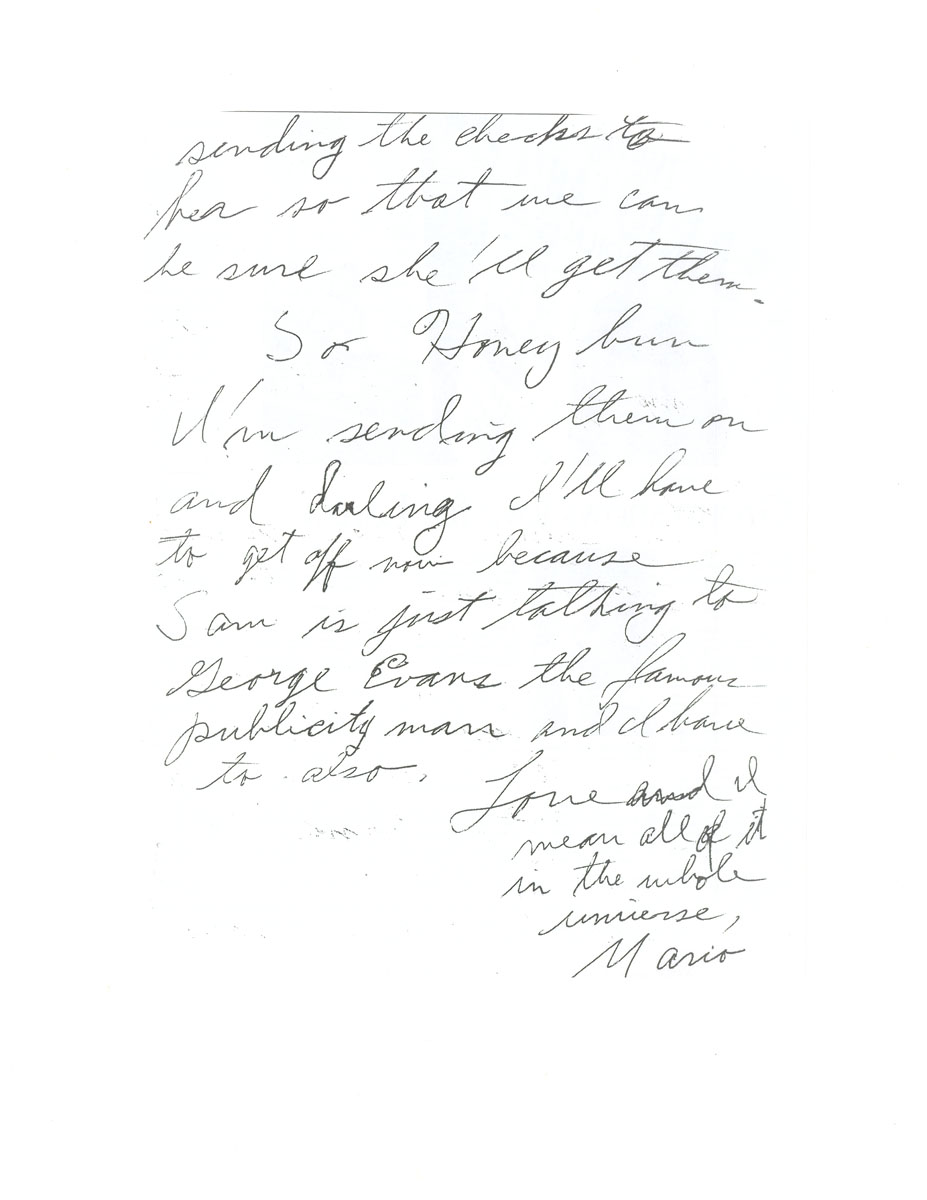 sending the checks to
her so that we can
be sure she'll get them.
So Honey bun
I'm sending them on
and darling I'll have
to get off now because
Sam is just talking to
George Evans the famous
publicity man and I have
to also.
Love and I
mean all of it
in the whole
universe,
Mario